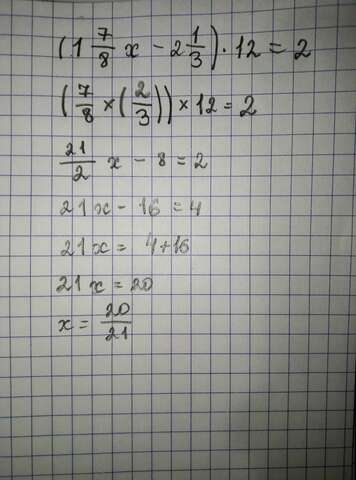 (1 7/8 x - 2 1/3) · 12 = 2
(7/8 × (2/3)) × 12 = 2
21/2 x - 8 = 2
21x - 16 = 4
21x = 4+16
21x = 20
x = 20/21